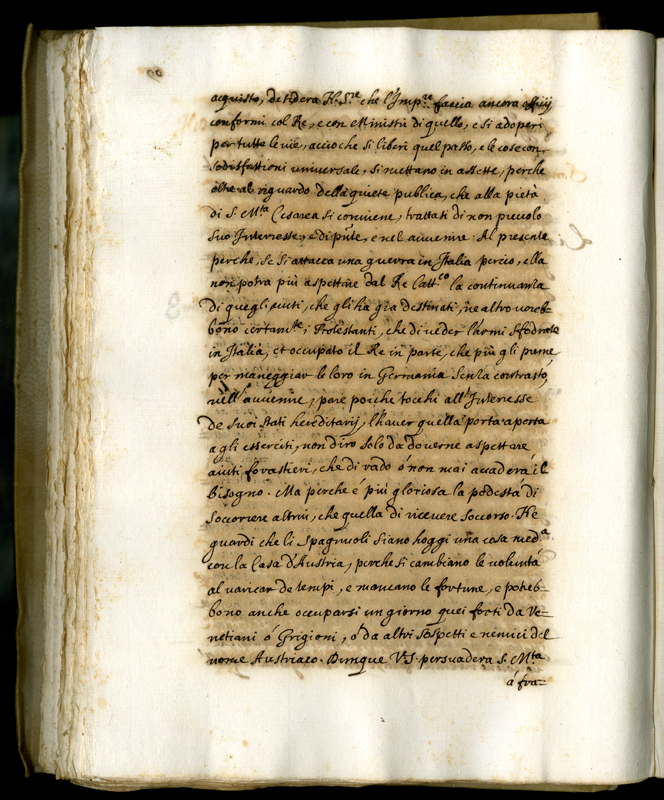 acquisto, desidera N. S.re che l'Imp.re faccia ancora ufficij
conformi col Re, e con Ministri di quello, e si adoperi
per tutte le vie, accioche si liberi quel passo, e le cose con
sodisfattioni universale, si mettano in assetto, perche
oltre al riguardo della quiete publica, che alla pietà
di S. M.ta Cesarea si conviene, trattasi di non piccolo
suo Interesse, e di pnte, e nel avvenire. Al presente
perche, se si attacca una guerra in Italia perciò, ella
non potrà più aspettare dal Re Catt.co la continuanza
di quegli aiuti, che gli ha già destinati, ne altro vorreb=
bono certam.te i Protestanti, che di veder l'armi sfodrate
in Italia, et occupato il Re in parte, che più gli preme
per maneggiar le loro in Germania senza contrasto,
nell'avvenire, pare poiche tocchi all'Interesse
de suoi stati hereditarij, l'haver quella porta aperta
a gli esserciti, non dirò solo da doverne aspettare
aiuti forastieri, che di rado ò non mai accaderà il
bisogno. Ma perche è più gloriosa la podestà di
soccorrere altrui, che quella di ricevere soccorso. Ne
guardi che li Spagnuoli siano hoggi una cosa med.a
con la Casa d'Austria, perche si cambiano le voluntà
al variar de tempi, e mancano le fortune, e potreb=
bono anche occuparsi un giorno quei forti da Ve=
netiani ò Grigioni, ò da altri sospetti e nemici del
nome Austriaco. Dunque V.S. persuaderà S. M.ta
à fra=